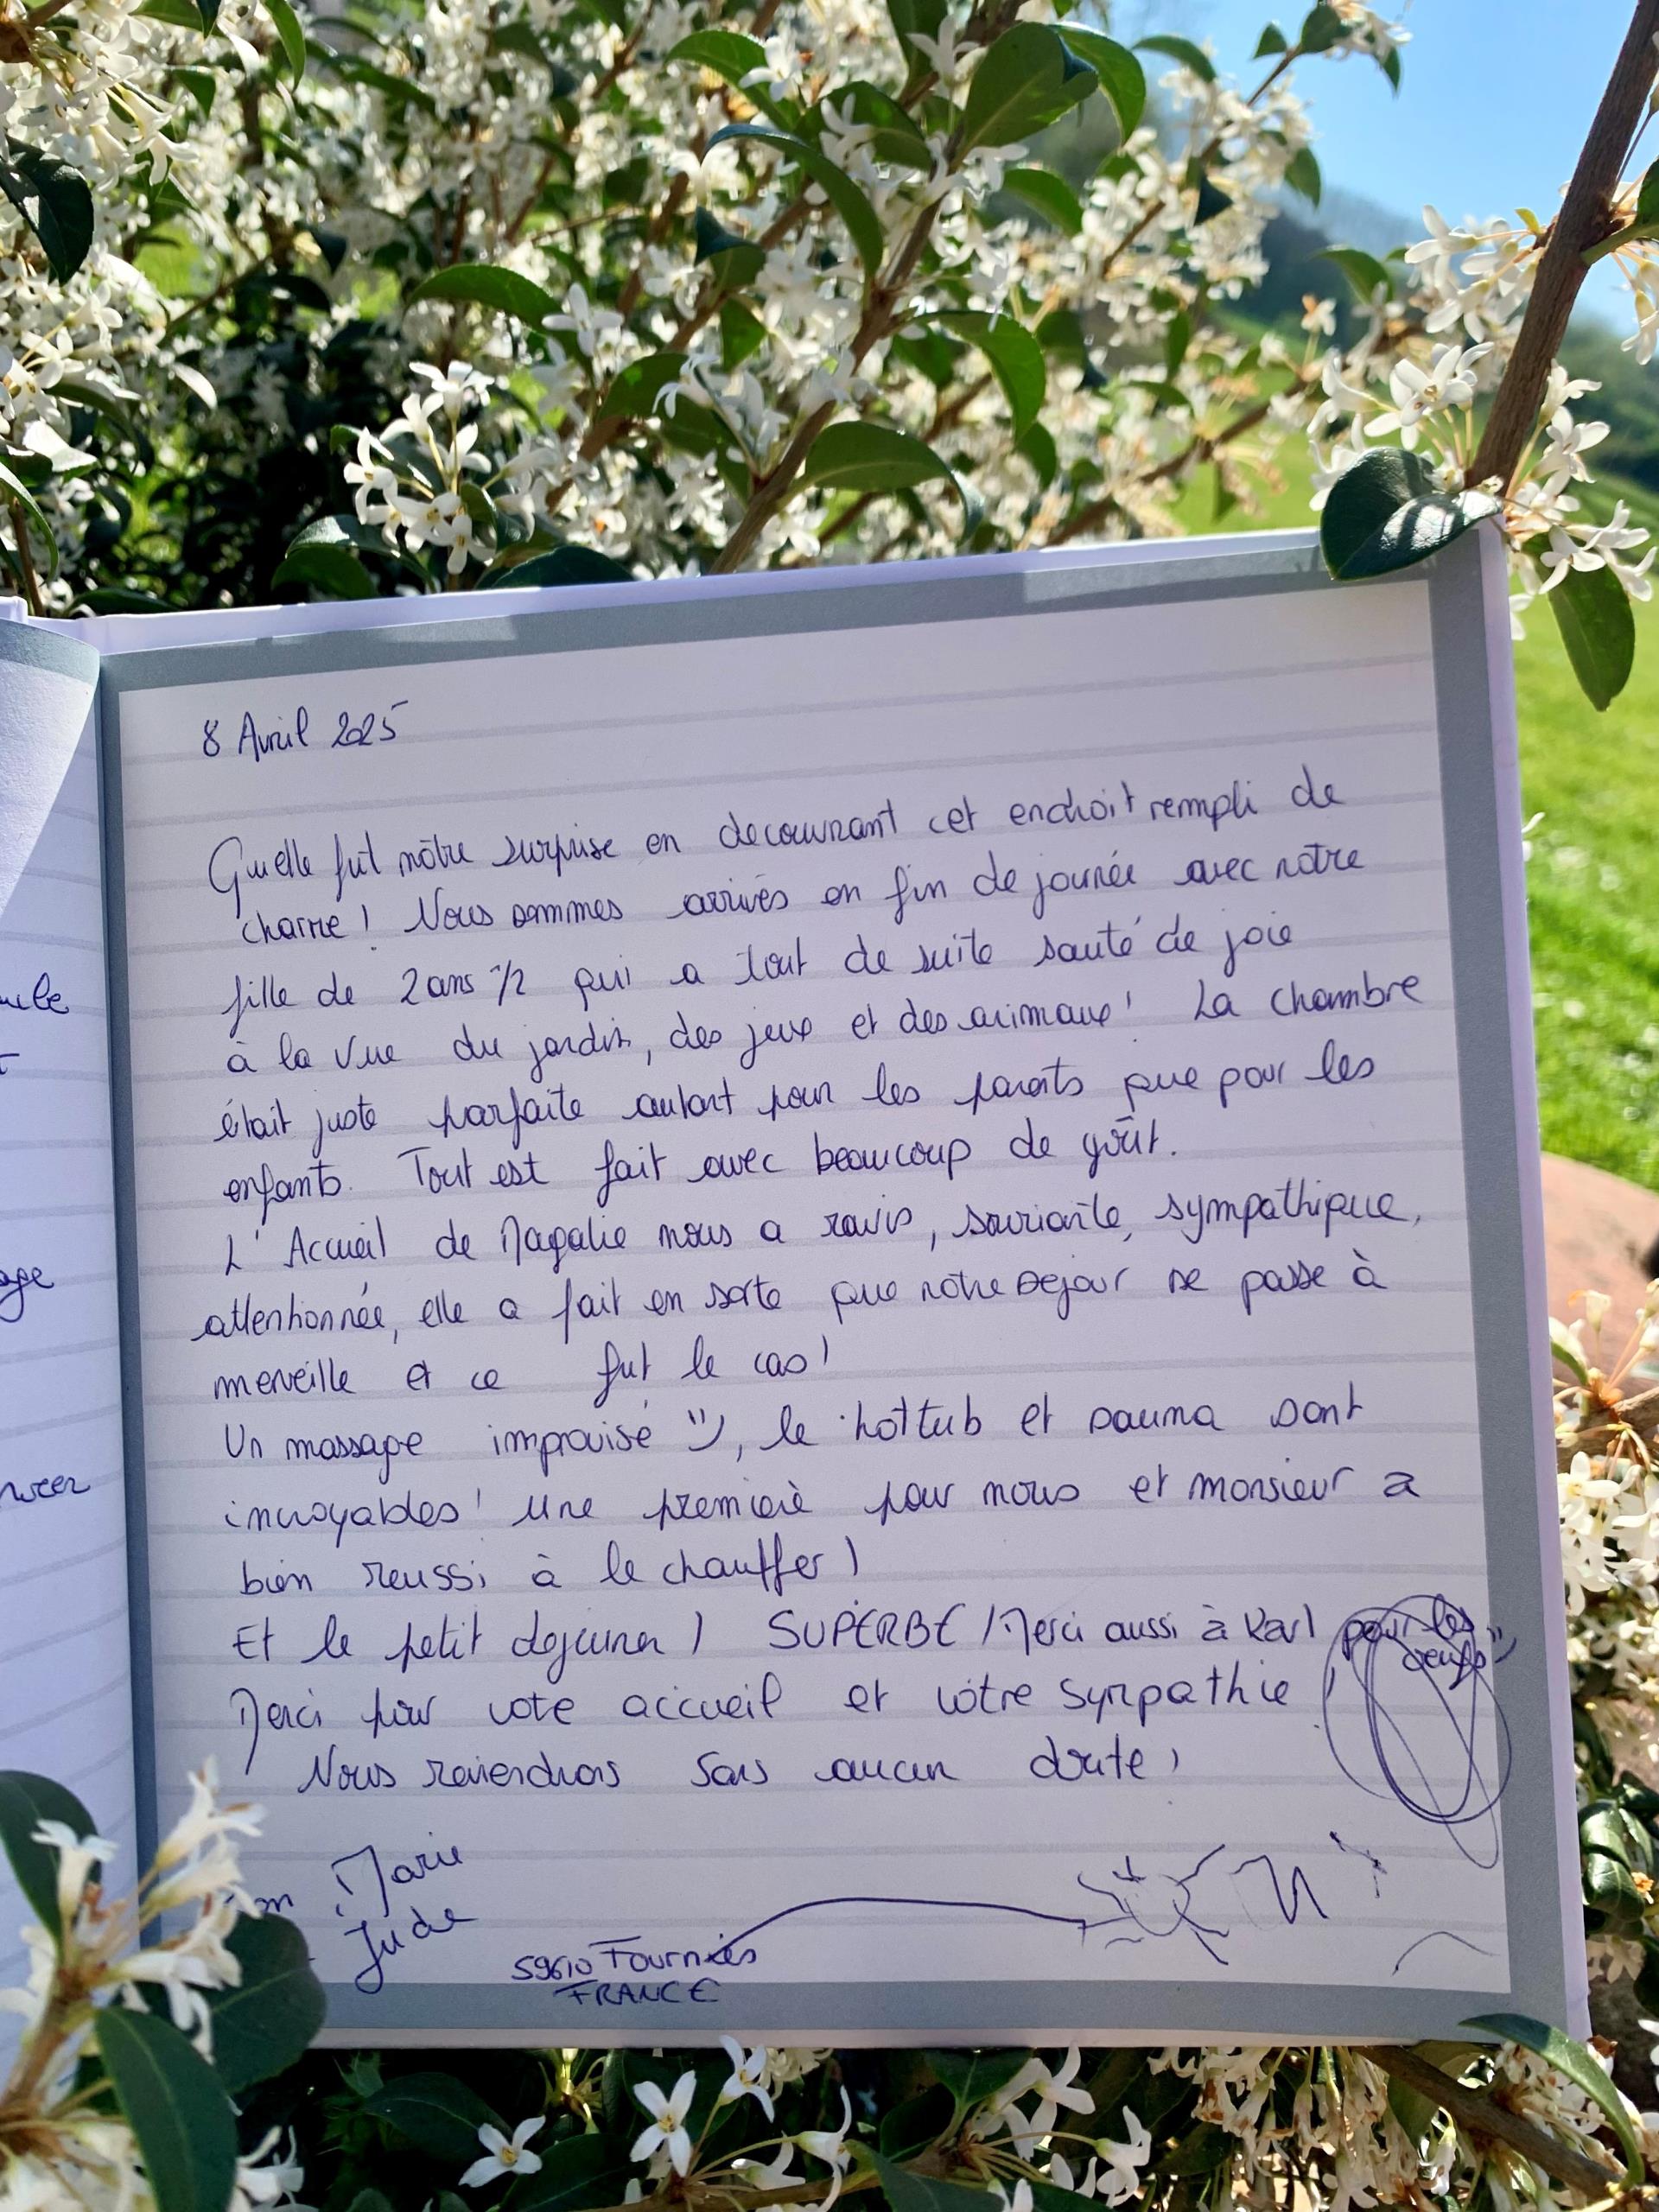 8 Avril 2025
Quelle fut nôtre surprise en decouvrant cet endroit rempli de
charme ! Nous sommes arrivés en fin de journée avec notre
fille de 2 ans 1/2 qui a tout de suite sauté de joie
à la vue du jardin, des jeux et des animaux ! La chambre
était juste parfaite autant pour les parents que pour les
enfants. Tout est fait avec beaucoup de goût.
L'Accueil de Magalie nous a ravis, souriante, sympathique,
attentionnée, elle a fait en sorte que notre sejour se passe à
merveille et ce fut le cas !
Un massage improvisé :), le hottub et sauna sont
incroyables ! Une première pour nous et monsieur a
bien reussi à le chauffer !
Et le petit dejeuner ! SUPERBE ! Merci aussi à Karl pour les
oeufs :)
Merci pour votre accueil et vôtre sympathie !
Nous reviendrons sans aucun doute !
Marie
Jude
59610 Fourmies
FRANCE